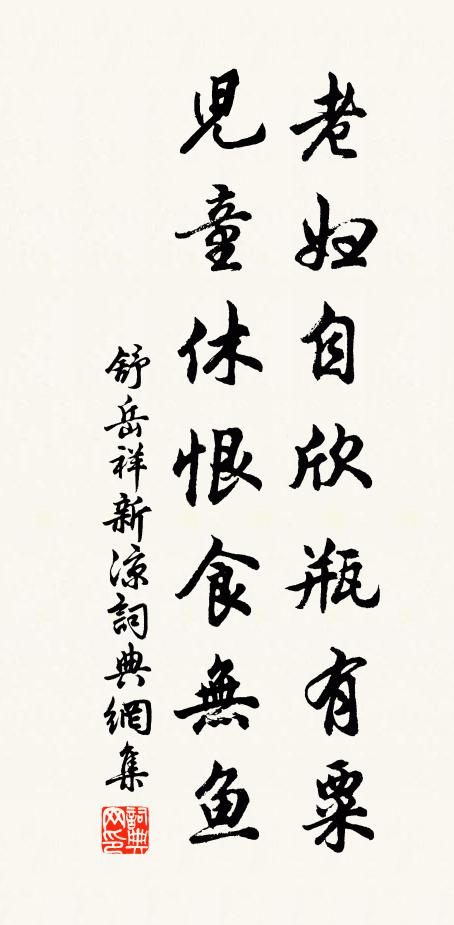 老妇自欣瓶有粟
児童休恨食無鱼
舒岳祥新凉詞典網集
詞典网印